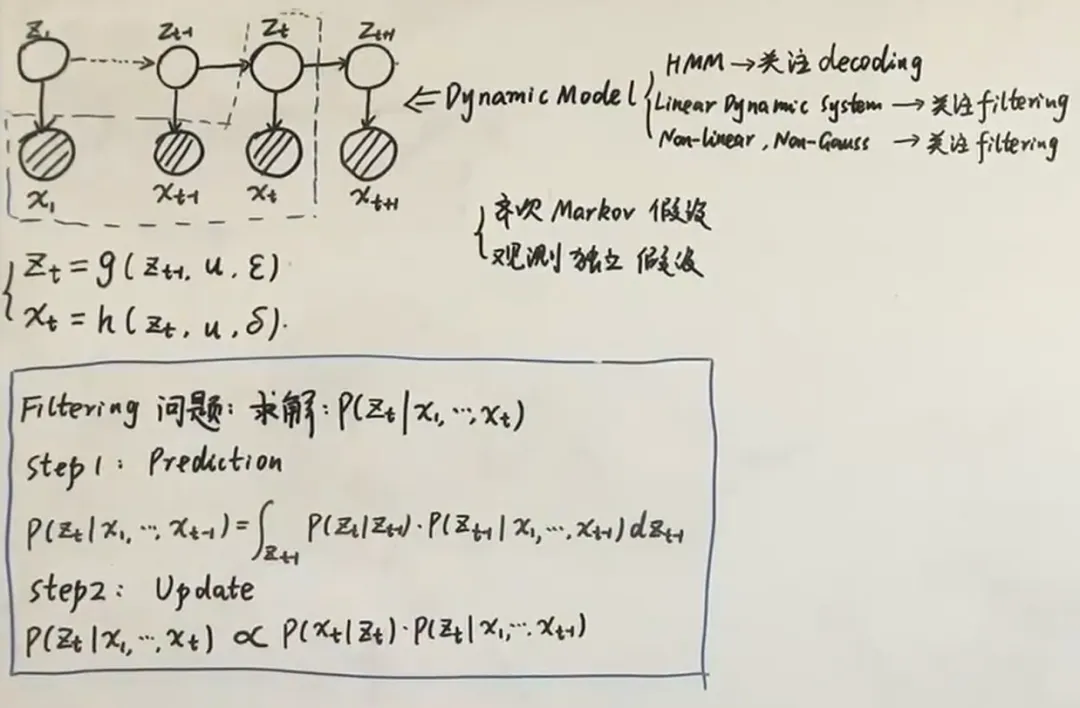 z₁ z_{t-1} z_t z_{t+1}
x₁ x_{t-1} x_t x_{t+1}
⇐ Dynamic Model
HMM → 关注 decoding
Linear Dynamic System → 关注 filtering
Non-linear, Non-Gauss → 关注 filtering
齐次 Markov 假设
观测独立假设
z_t = g(z_{t-1}, u, ε)
x_t = h(z_t, u, δ).
Filtering 问题: 求解: P(z_t | x₁, ···, x_t)
Step 1: Prediction
P(z_t | x₁, ···, x_{t-1}) = ∫_{z_{t-1}} P(z_t | z_{t-1}) · P(z_{t-1} | x₁, ···, x_{t-1}) dz_{t-1}
Step 2: Update
P(z_t | x₁, ···, x_t) ∝ P(x_t | z_t) · P(z_t | x₁, ···, x_{t-1})